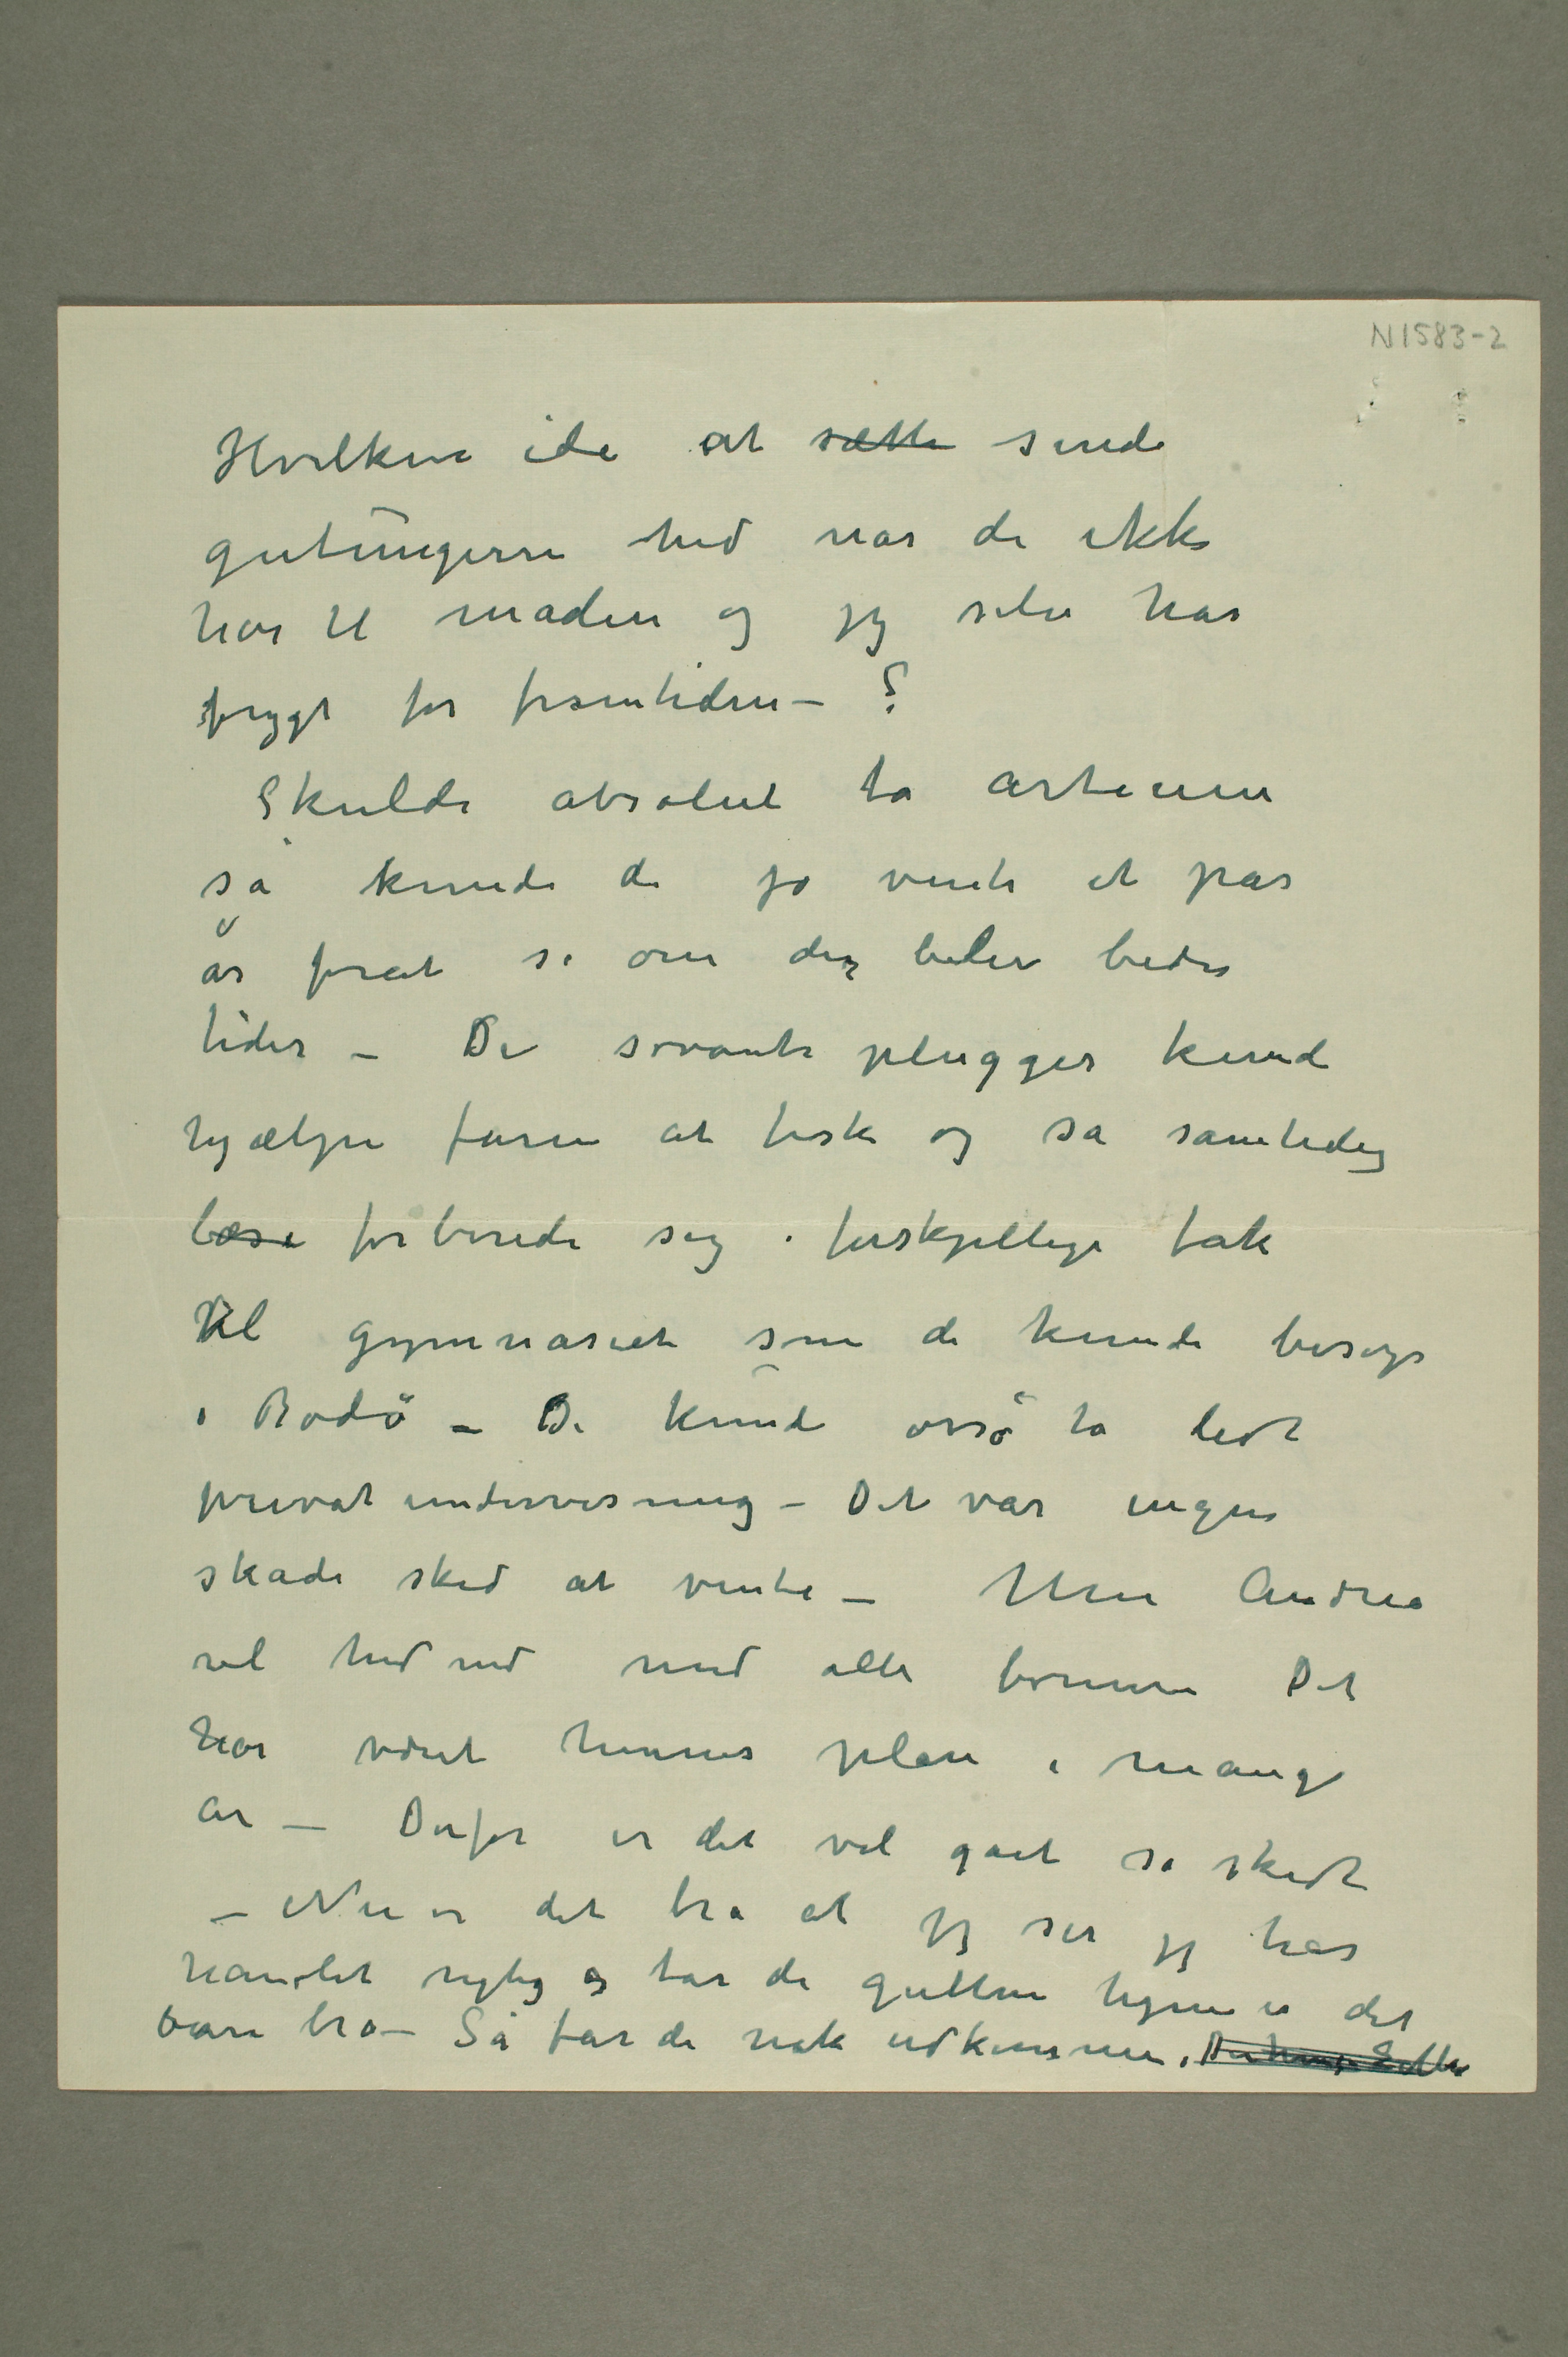 N1583-2
Hvilken ide at sætte sende
gutungerne hid når de ikke
har til maden og jeg selv har
frygt for fremtiden – ?
Skulde absolut ta artium
så kunde de jo vente et par
år forat se om der blev bedre
tider – De svante plugger kunde
hjælpe faren at fiske og så samtidig
læse forberede sig i forskjellige fak
til gymnasiet som de kunde besøge
i Bodö – De kunde også ta lidt
privat undervisning – Det var ingen
skade sked at vente – Men Andrea
vil hid ned med alle børnene Det
har været hennes plan i mange
år – Derfor er det vel gået så skidt
– Nu er det bra at jeg ser jeg har
handlet rigtig og tar de guttene hjem er det
bare bra – Så får de nok udkomme.